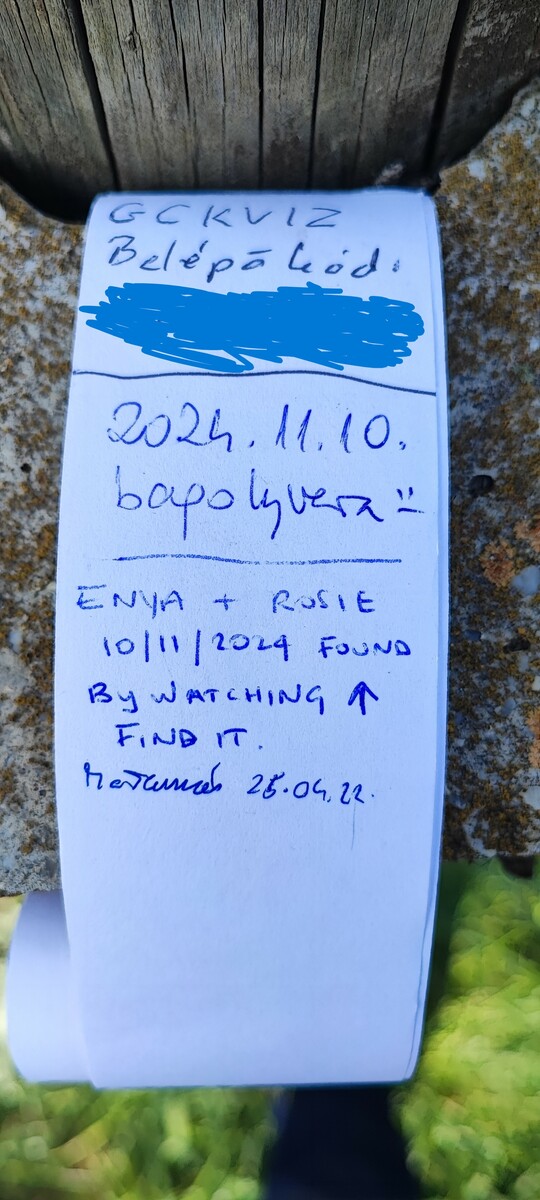 GCKVIZ
Belépő kód:
2024.11.10.
bagolyvera
ENYA + ROSIE
10/11/2024 FOUND
By WATCHING ↑
FIND IT.
25.04.22.